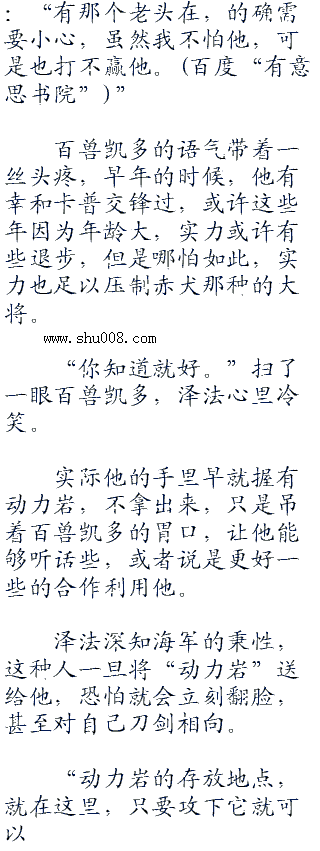 ：“有那个老头在，的确需
要小心，虽然我不怕他，可
是也打不赢他。(百度“有意
思书院”)”
百兽凯多的语气带着一
丝头疼，早年的时候，他有
幸和卡普交锋过，或许这些
年因为年龄大，实力或许有
些退步，但是哪怕如此，实
力也足以压制赤犬那种的大
将。
www.shu008.com
“你知道就好。”扫了
一眼百兽凯多，泽法心里冷
笑。
实际他的手里早就握有
动力岩，不拿出来，只是吊
着百兽凯多的胃口，让他能
够听话些，或者说是更好一
些的合作利用他。
泽法深知海军的秉性，
这种人一旦将“动力岩”送
给他，恐怕就会立刻翻脸，
甚至对自己刀剑相向。
“动力岩的存放地点，
就在这里，只要攻下它就可
以